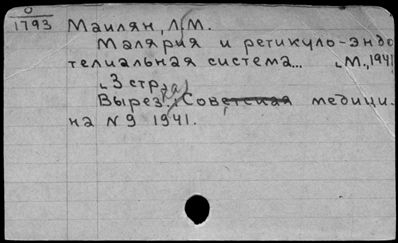 0
1793 Маилян, Л.М.
Малярия и ретикуло-эндо
телиальная система... М., 1941
3 стр.
Вырезка: Советская медици-
на N 9 1941.